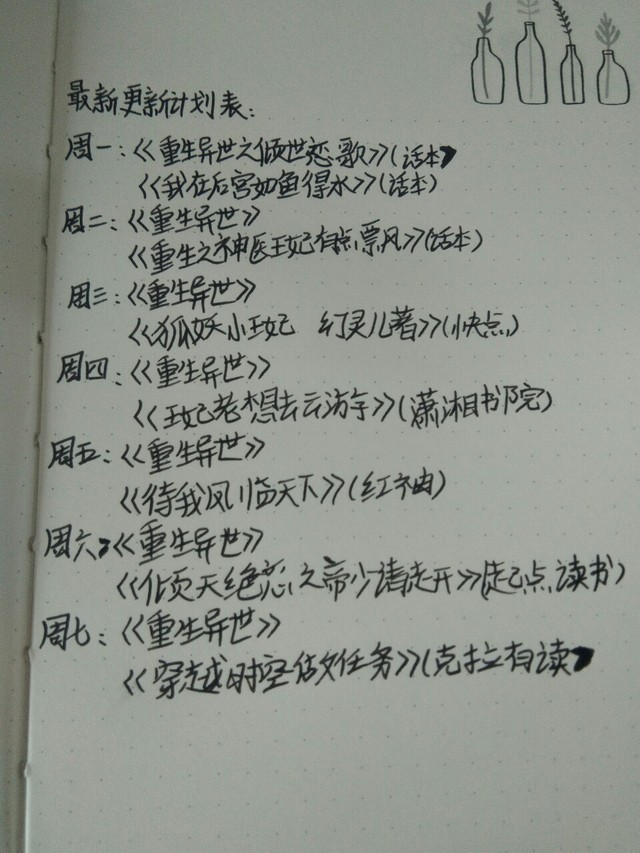 最新更新计划表:
周一:《重生异世之倾世恋歌》(话本)
《我在后宫如鱼得水》(话本)
周二:《重生异世》
《重生之神医王妃有点票风》(话本)
周三:《重生异世》
《狐妖小王妃 幻灵儿著》(快点)
周四:《重生异世》
《王妃老想去云游宇》(潇湘书院)
周五:《重生异世》
《待我凤临天下》(红袖)
周六:《重生异世》
《倾天绝恋之帝少请走开》(起点读书)
周七:《重生异世》
《穿越时空做任务》(克拉有读)